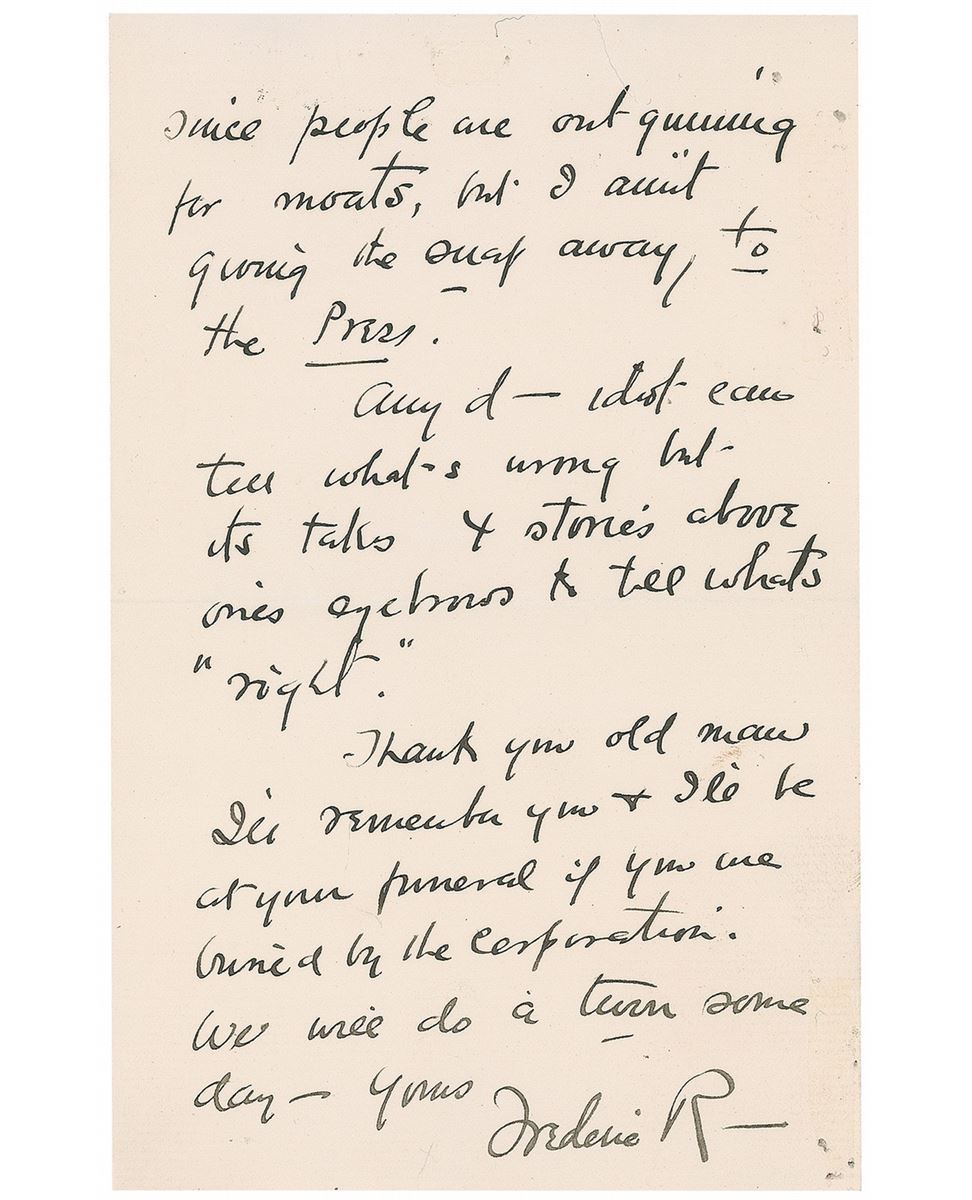 since people are out gunning
for moats, but I ain't
giving the snap away, to
the Press.
Any d— idiot can
tell what's wrong but
its takes 4 stories above
ones eyebrows to tell whats
"right."
Thank you old man
I'll remember you & I'll be
at your funeral if you are
buried by the corporation.
We will do a turn some
day— Yours
Frederic R—